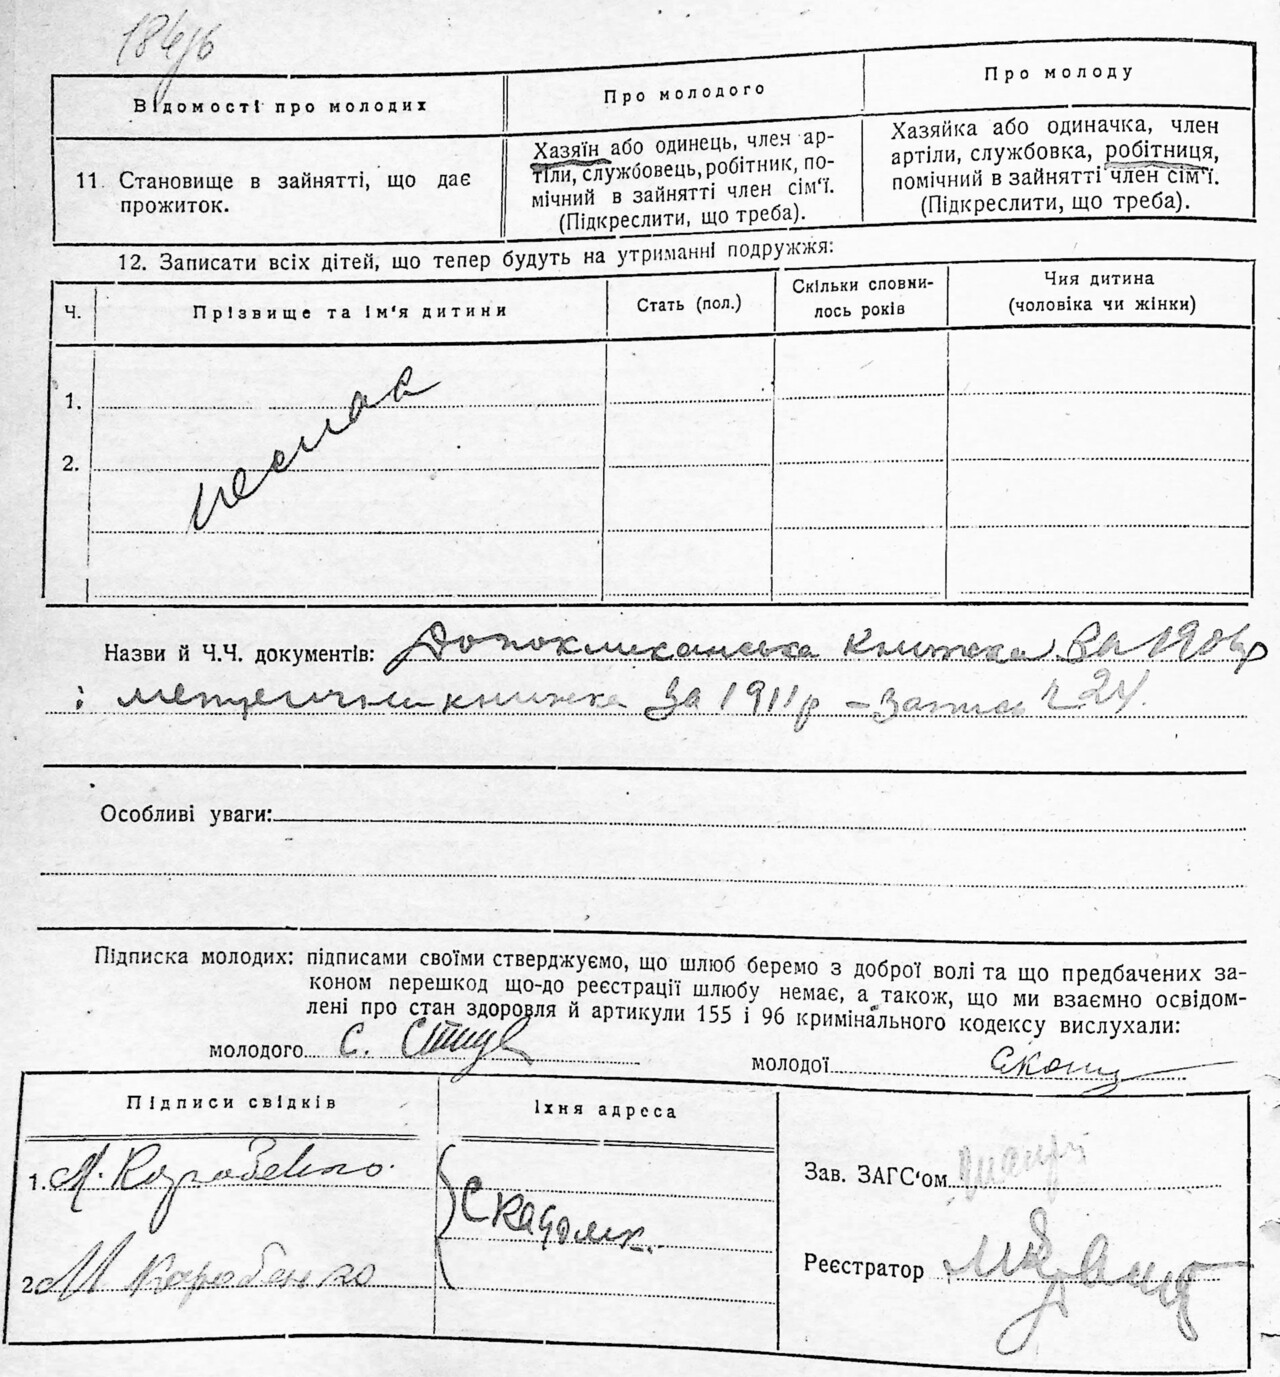 184/6
Відомості про молодих
Про молодого
Про молоду
11. Становище в зайнятті, що дає
прожиток.
Хазяїн або одинець, член ар-
тіли, службовець, робітник, по-
мічний в зайнятті член сім'ї.
(Підкреслити, що треба).
Хазяйка або одиначка, член
артіли, службовка, робітниця,
помічний в зайнятті член сім'ї.
(Підкреслити, що треба).
12. Записати всіх дітей, що тепер будуть на утриманні подружжя:
Ч.
Прізвище та ім'я дитини
Стать (пол.)
Скільки сповни-
лось років
Чия дитина
(чоловіка чи жінки)
1.
2.
Назви й Ч.Ч. документів: книжка за
і книжка за 1911р – запис 24.
Особливі уваги:
Підписка молодих: підписами своїми стверджуємо, що шлюб беремо з доброї волі та що предбачених за-
коном перешкод що-до реєстрації шлюбу немає, а також, що ми взаємно освідом-
лені про стан здоровля й артикули 155 і 96 кримінального кодексу вислухали:
молодого С.
молодої
Підписи свідків
Їхня адреса
1. М. Коробенко.
2. М. Коробенко
Зав. ЗАГС'ом
Реєстратор